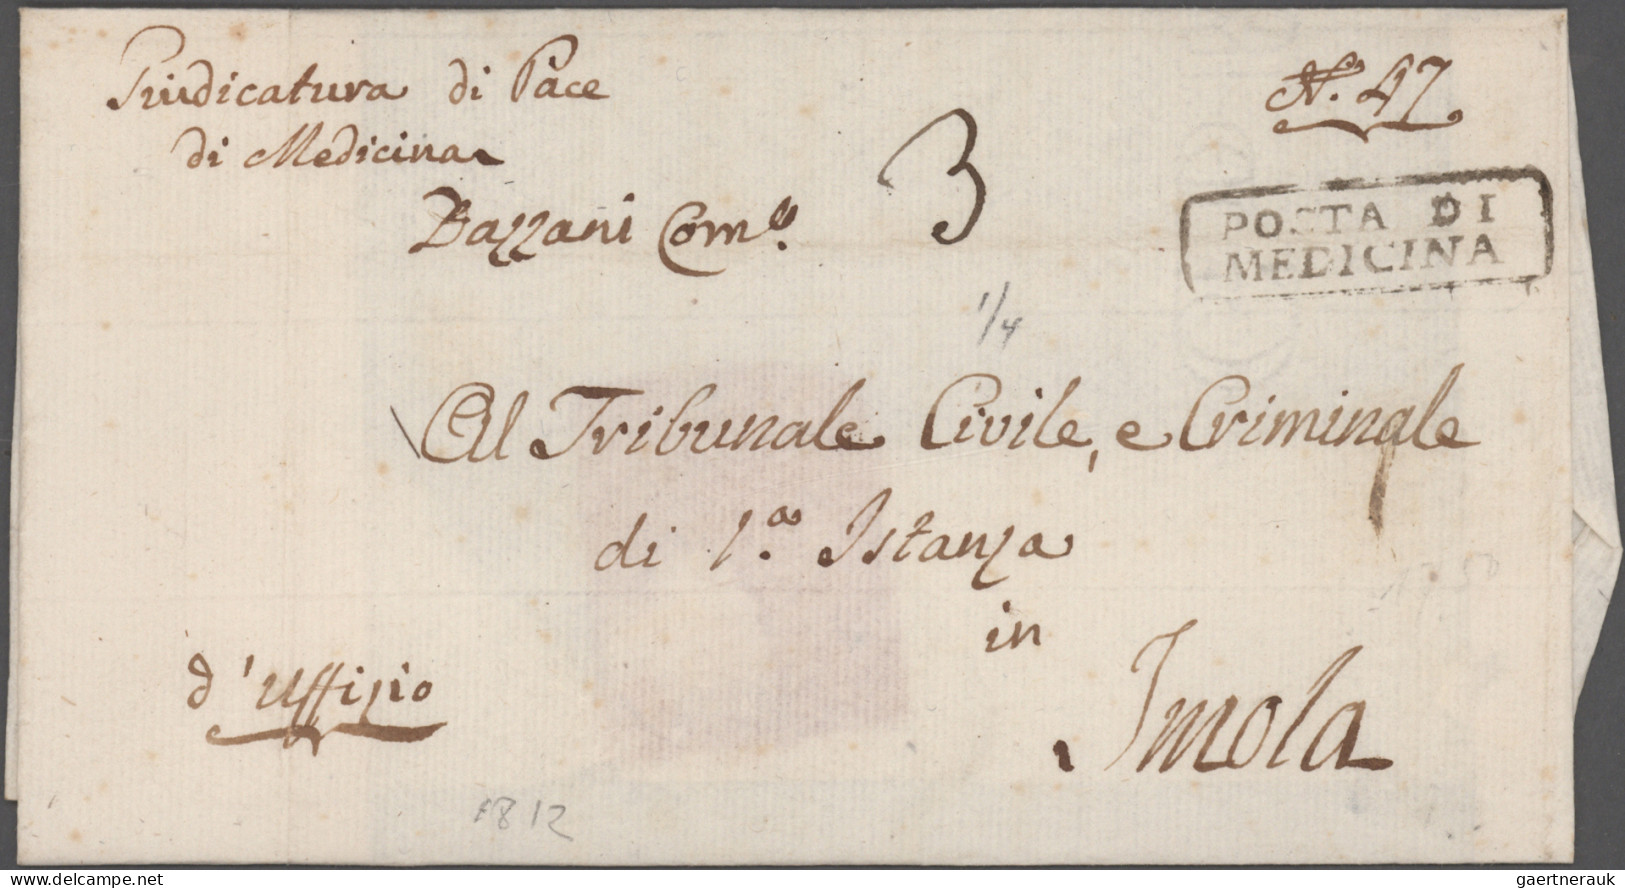 Giudicatura di Pace
di Medicina
Bazzani Com.º
N. 47
3
POSTA DI
MEDICINA
1/4
Al Tribunale Civile, e Criminale
di 1.a Istanza
in
Imola
d'Uffizio
1812
DELCAMPE.NET
gaertnerauk